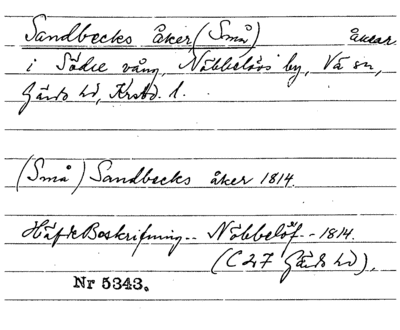 Sandbecks åker (Små) åkrar
i Södre vång, Nöbbelövs by, Vä sn,
Gärds hd, Krstd. l.
(Små) Sandbecks åker 1814.
Häfde Beskrifning -- Nöbbelöf -- 1814.
(C 27 Gärds hd).
Nr 5343.